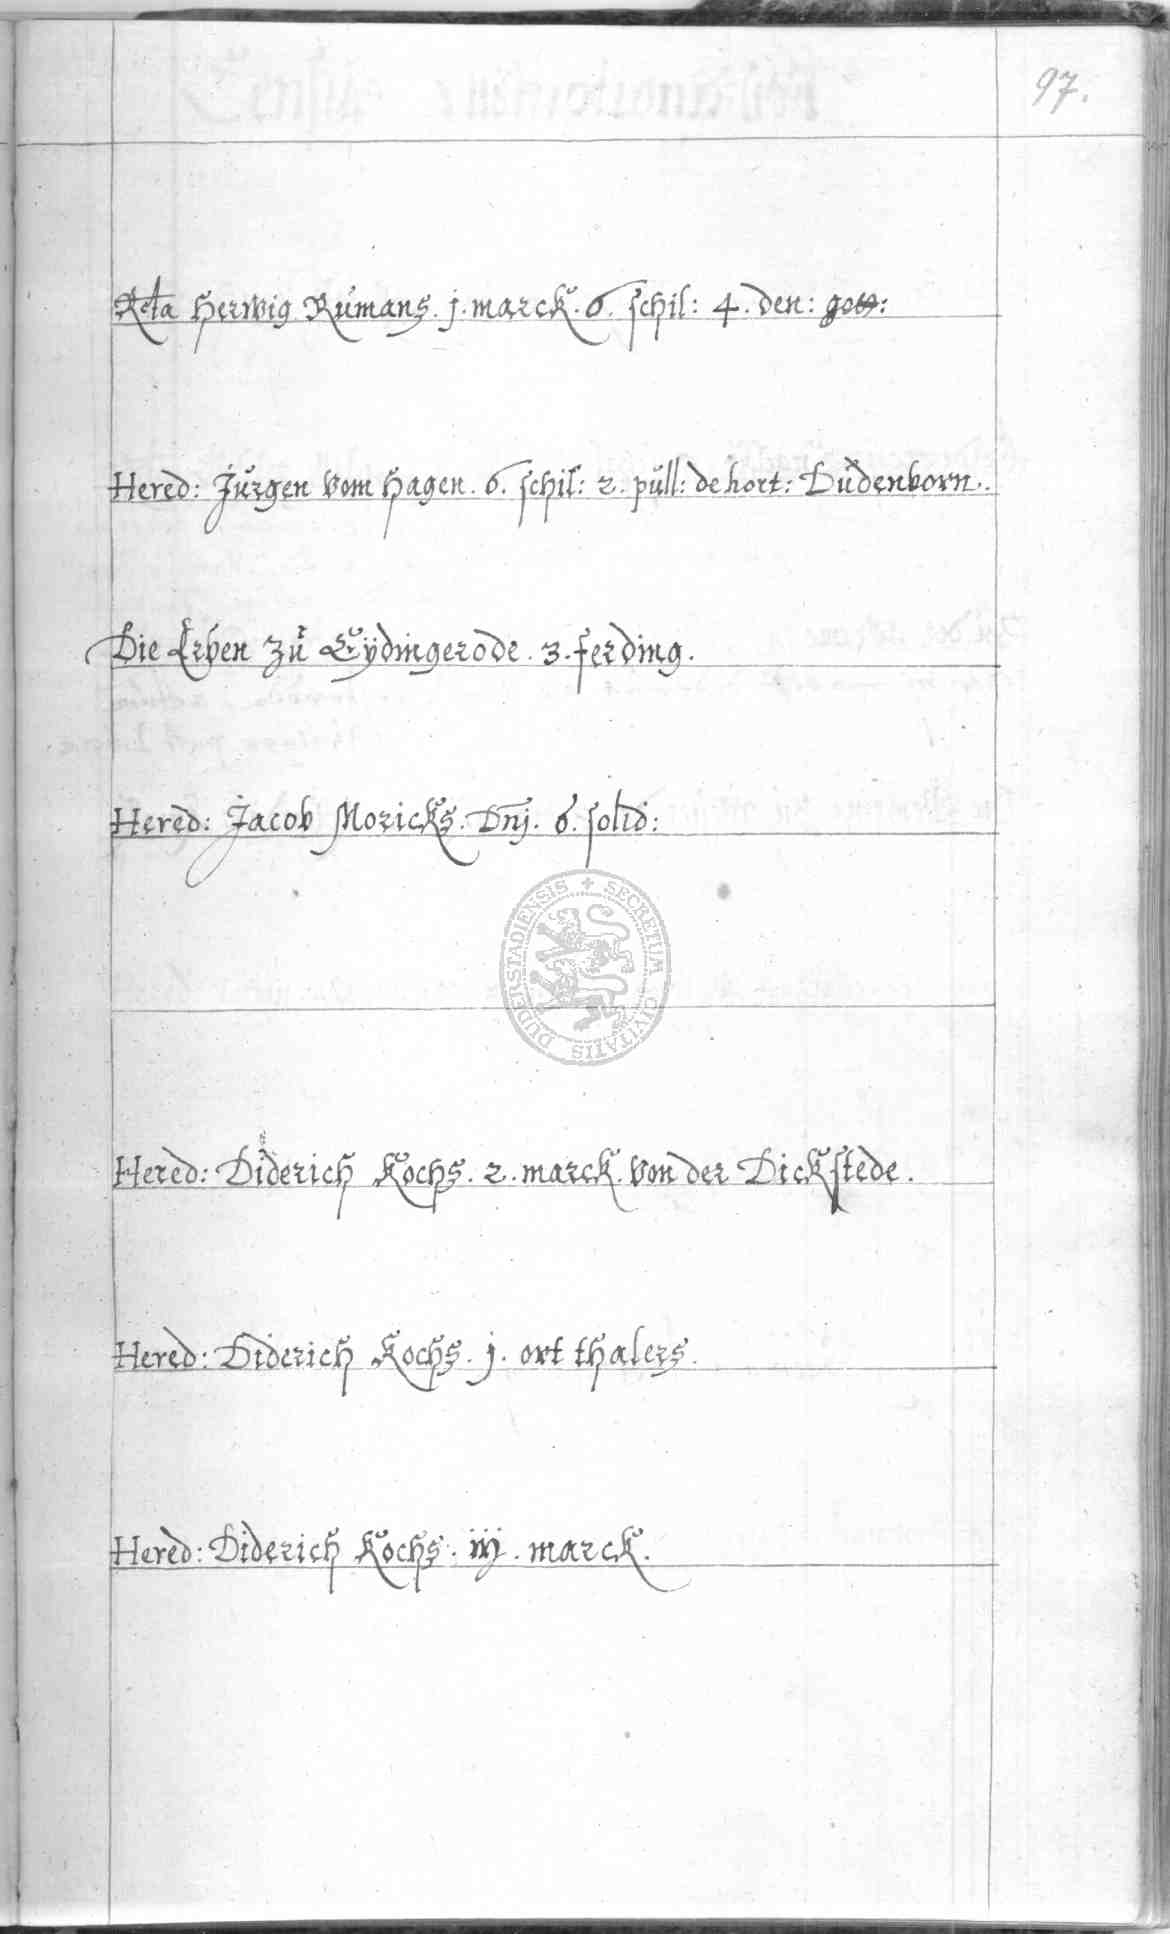 97.
Rcta Herwig Rumans. j. marck. 6. schil: 4. den: gott:
Hered: Jurgen vom Hagen. 6. schil: 2. pull: de hort: Dudenborn..
Die Erben zu Eÿdingerode. 3. ferding.
Hered: Jacob Moricks. Dnj. 6. solid:
SECRETUM CIVITATIS DUDERSTADIENSIS
Hered: Diderich Kochs. 2. marck. von der Dickstede.
Hered: Diderich Kochs. j. ort thalers.
Hered: Diderich Kochs. iij. marck.